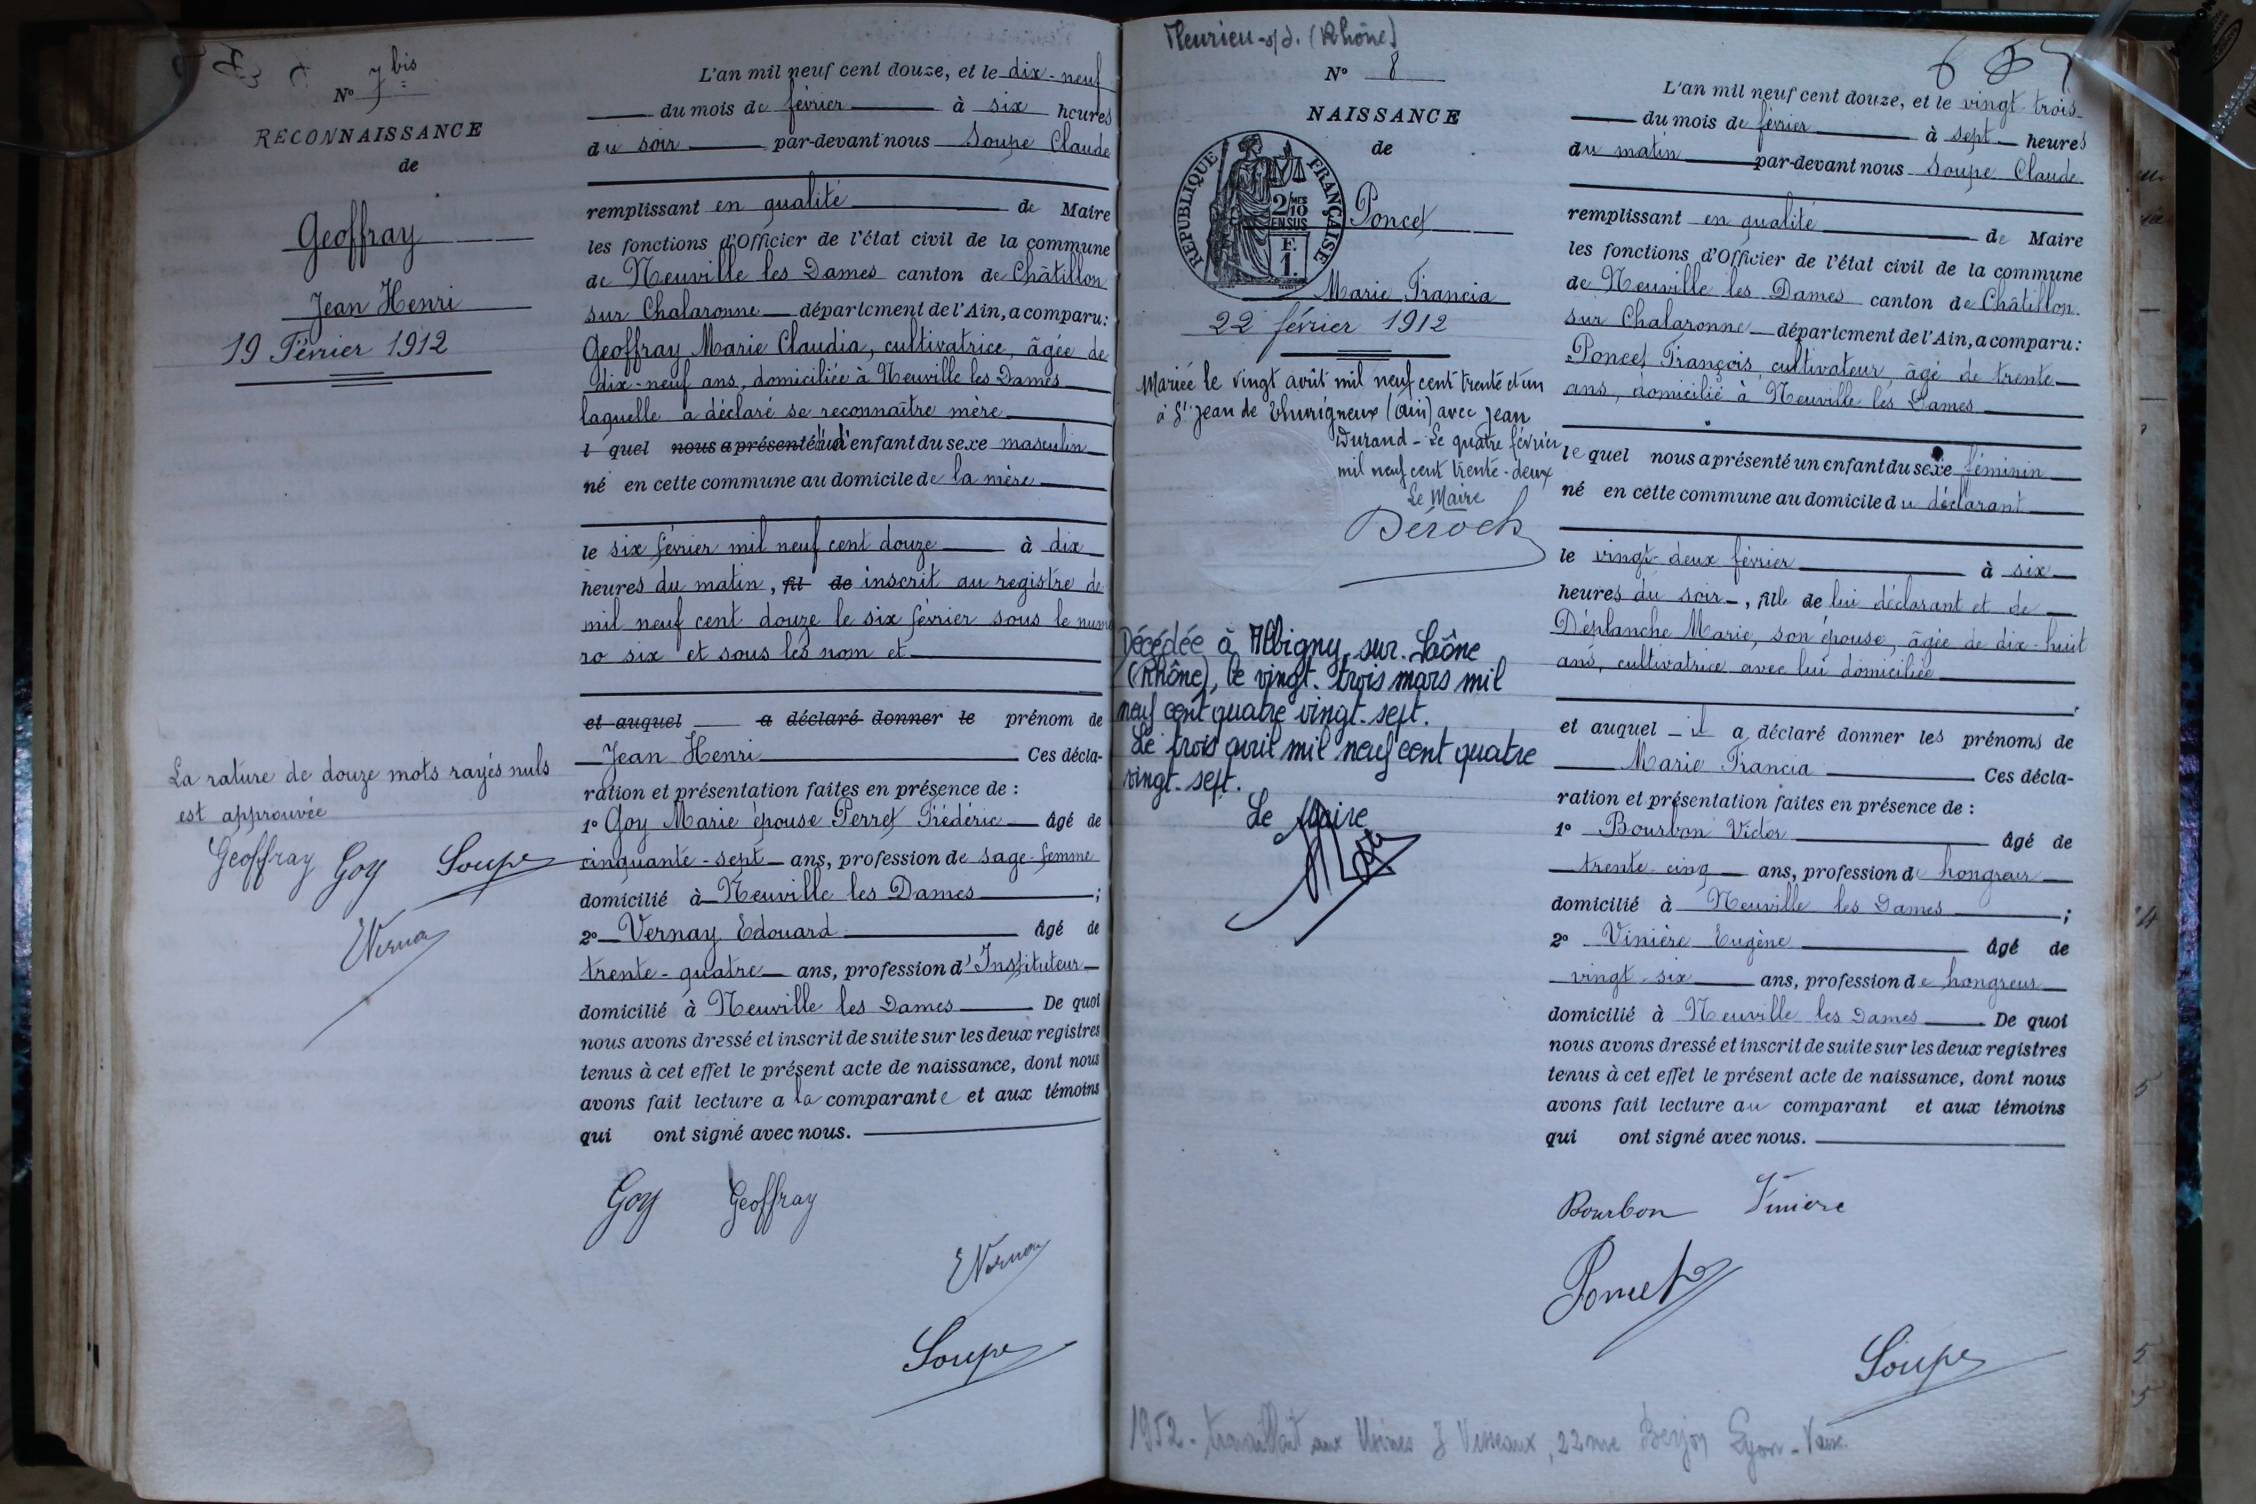 N° 7 bis
RECONNAISSANCE
de
Geoffray
Jean Henri
19 Février 1912
La rature de douze mots rayés nuls
est approuvée
Geoffray Goy Soupe
EVernay
L'an mil neuf cent douze, et le dix-neuf
du mois de février à six heures
du soir par-devant nous Soupe Claude
remplissant en qualité de Maire
les fonctions d'Officier de l'état civil de la commune
de Neuville les Dames canton de Châtillon
sur Chalaronne département de l'Ain, a comparu:
Geoffray Marie Claudia, cultivatrice, âgée de
dix-neuf ans, domiciliée à Neuville les Dames
laquelle a déclaré se reconnaître mère
l quel nous a présenté d'un enfant du sexe masculin
né en cette commune au domicile de la mère
le six février mil neuf cent douze à dix
heures du matin, fil de inscrit au registre de
mil neuf cent douze le six février sous le numé
ro six et sous les nom et
et auquel a déclaré donner le prénom de
Jean Henri Ces décla-
ration et présentation faites en présence de :
1° Goy Marie épouse Perret Frédéric âgé de
cinquante-sept ans, profession de sage-femme
domicilié à Neuville les Dames ;
2° Vernay Edouard âgé de
trente-quatre ans, profession d'Instituteur
domicilié à Neuville les Dames De quoi
nous avons dressé et inscrit de suite sur les deux registres
tenus à cet effet le présent acte de naissance, dont nous
avons fait lecture a la comparante et aux témoins
qui ont signé avec nous.
Goy Geoffray
EVernay
Soupe
Fleurieu-s/S. (Rhône)
N° 8
NAISSANCE
de
REPUBLIQUE FRANÇAISE
2/10 MES
EN SUS
F.
1.
Poncet
Marie Francia
22 février 1912
Mariée le vingt août mil neuf cent trente et un
à St Jean de Thurigneux (Ain) avec Jean
Durand - Le quatre février
mil neuf cent trente-deux
Le Maire
Béroch
Décédée à Albigny-sur-Saône
(Rhône), le vingt-trois mars mil
neuf cent quatre vingt-sept.
Le trois avril mil neuf cent quatre
vingt-sept.
Le Maire
L'an mil neuf cent douze, et le vingt trois
du mois de février à sept heures
du matin par-devant nous Soupe Claude
remplissant en qualité de Maire
les fonctions d'Officier de l'état civil de la commune
de Neuville les Dames canton de Châtillon
sur Chalaronne département de l'Ain, a comparu:
Poncet François cultivateur âgé de trente
ans, domicilié à Neuville les Dames
le quel nous a présenté un enfant du sexe féminin
né en cette commune au domicile du déclarant
le vingt-deux février à six
heures du soir, fille de lui déclarant et de
Déplanche Marie, son épouse, âgée de dix-huit
ans, cultivatrice avec lui domiciliée
et auquel il a déclaré donner les prénoms de
Marie Francia Ces décla-
ration et présentation faites en présence de :
1° Bourbon Victor âgé de
trente cinq ans, profession de hongreur
domicilié à Neuville les Dames ;
2° Vinière Eugène âgé de
vingt-six ans, profession de hongreur
domicilié à Neuville les Dames De quoi
nous avons dressé et inscrit de suite sur les deux registres
tenus à cet effet le présent acte de naissance, dont nous
avons fait lecture au comparant et aux témoins
qui ont signé avec nous.
Bourbon Vinière
Poncet
Soupe
1952 - travaillait aux Usines J Visseaux, 22 rue Berjon Lyon-Vaise